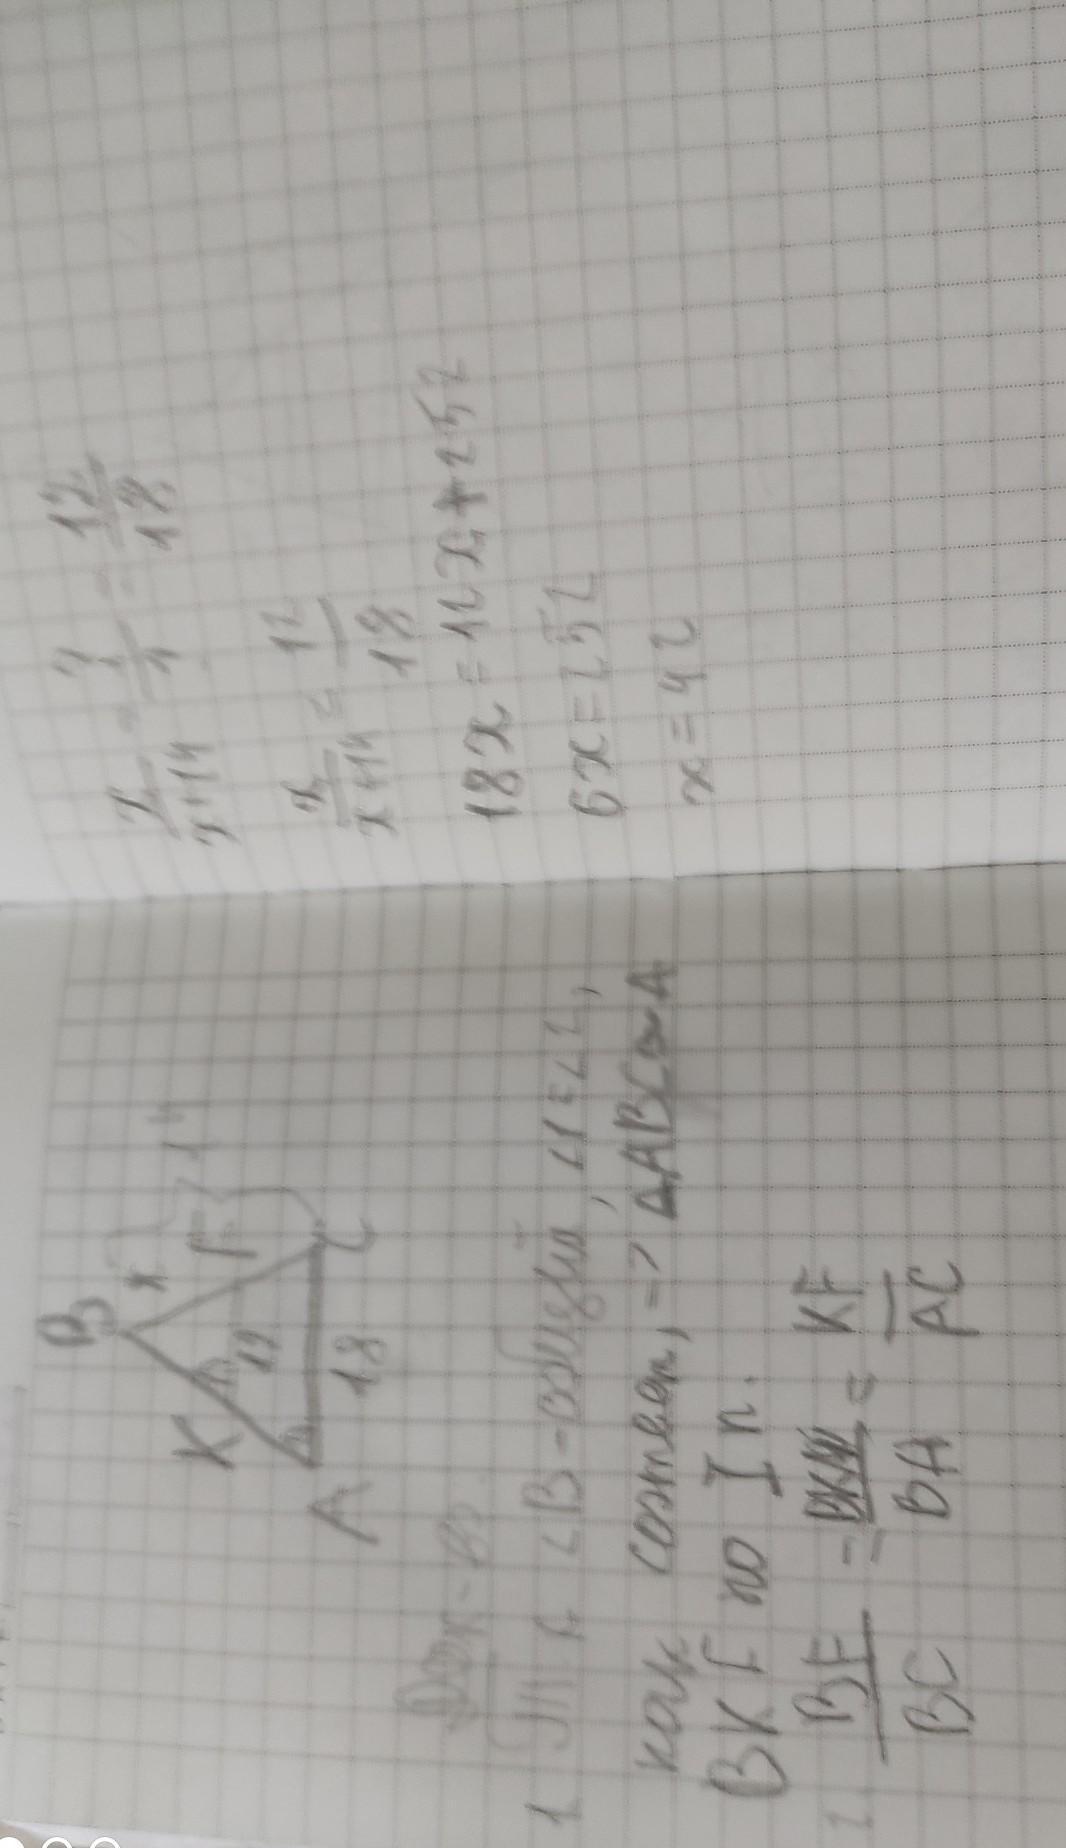 B
x
K
F
14
12
A
18
C
Док-во.
1 Т.к ∠B-общий, ∠1=∠2,
как соответ, => ΔABC∾Δ
BKF по I п.
2. BF/BC = BK/BA = KF/AC
x/x+14 = ?/1 = 12/18
x/x+14 = 12/18
18x=12x+252
6x=252
x=42